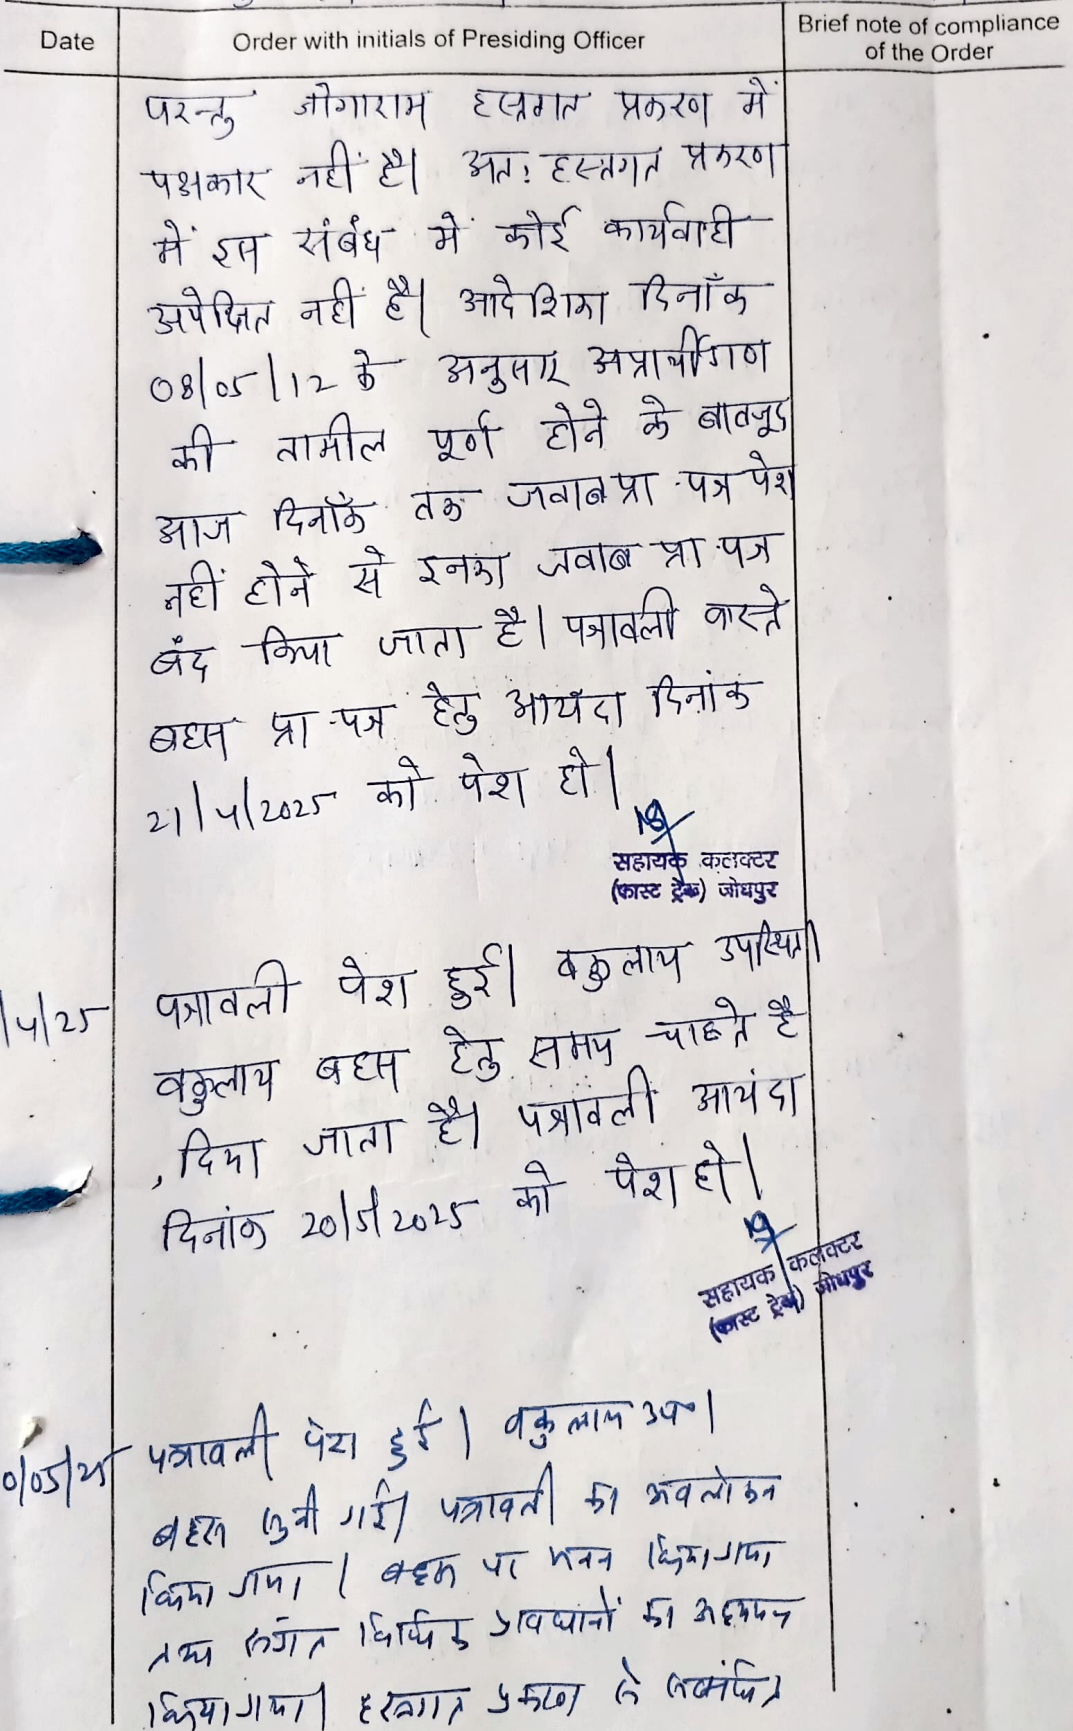 Date
Order with initials of Presiding Officer
Brief note of compliance
of the Order
परन्तु जोगाराम हस्तगत प्रकरण में
पक्षकार नहीं है। अतः हस्तगत प्रकरण
में इस संबंध में कोई कार्यवाही
अपेक्षित नहीं है। आदेशिका दिनाँक
08/05/12 के अनुसार अप्रार्थीगण
की तामील पूर्ण होने के बावजूद
आज दिनाँक तक जवाब प्रा.पत्र पेश
नहीं होने से इनका जवाब प्रा.पत्र
बंद किया जाता है। पत्रावली वास्ते
बहस प्रा.पत्र हेतु आयंदा दिनांक
21/4/2025 को पेश हो।
सहायक कलक्टर
(फास्ट ट्रैक) जोधपुर
/4/25
पत्रावली पेश हुई। वकुलाय उपस्थित।
वकुलाय बहस हेतु समय चाहते है
, दिया जाता है। पत्रावली आयंदा
दिनांक 20/5/2025 को पेश हो।
सहायक कलक्टर
(फास्ट ट्रैक) जोधपुर
0/05/25
पत्रावली पेश हुई। वकुलाय उप०।
बहस सुनी गई। पत्रावली का अवलोकन
किया गया। बहस पर मनन किया गया
तथा विधिक प्रावधानों का अध्ययन
किया गया। हस्तगत प्रकरण से सम्बंधित